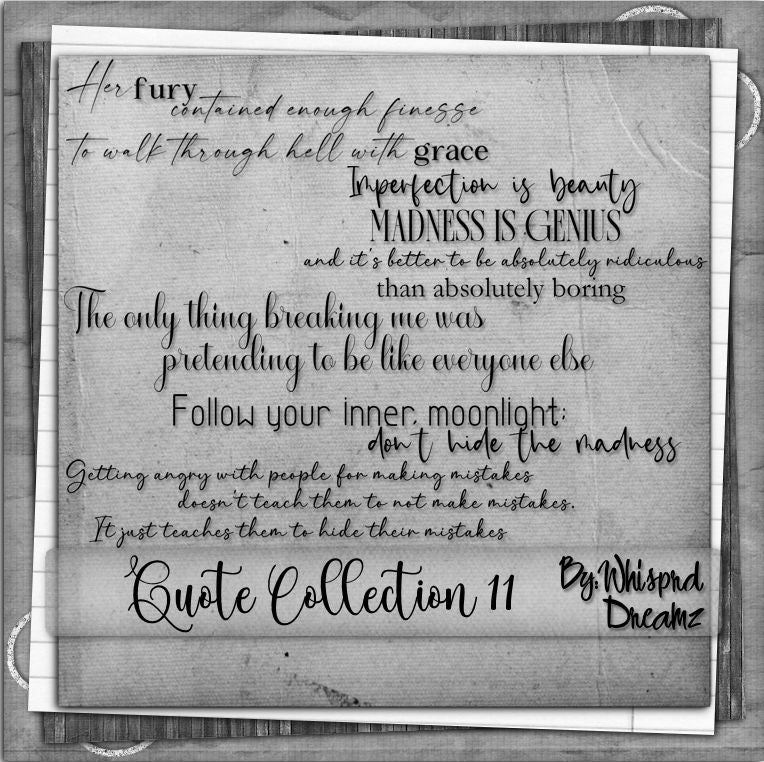 Her fury
contained enough finesse
to walk through hell with grace
Imperfection is beauty
MADNESS IS GENIUS
and it's better to be absolutely ridiculous
than absolutely boring
The only thing breaking me was
pretending to be like everyone else
Follow your inner, moonlight;
don't hide the madness
Getting angry with people for making mistakes
doesn't teach them to not make mistakes.
It just teaches them to hide their mistakes
Quote Collection 11
By: Whisprd
Dreamz